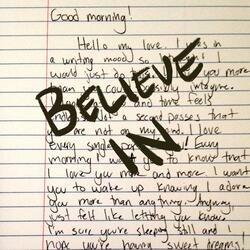 Good morning!
Hello my love. I was in
a writing mood so
would just you more
than you could possibly imagine.
and time feels
Not a second passes that
you are not on my mind. I love
every single
morning I want you to know that
I love you more and more. I want
you to wake up knowing I adore
you more than anything. Anyway,
just felt like letting you know.
I'm sure you're sleeping still and I
hope you're having sweet dreams
BELIEVE
IN